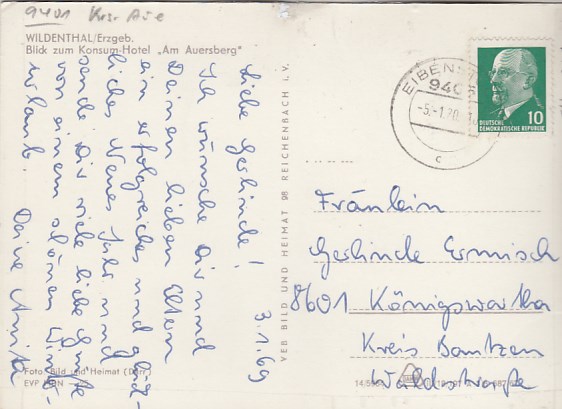 9401 Krs. Aue
WILDENTHAL/Erzgeb.
Blick zum Konsum-Hotel „Am Auersberg"
3.1.69
Liebe Gerlinde!
Ich wünsche Dir und
Deinen lieben Eltern
ein erfolgreiches und glück-
liches Neues Jahr und
sende Dir viele liebe Grüße
von einem schönen Winter-
urlaub. Deine Anita
VEB BILD UND HEIMAT 98 REICHENBACH i. V.
Foto: Bild und Heimat (Darr)
EVP MDN
EIBENST
940
-5.-1.70
c
10
DEUTSCHE
DEMOKRATISCHE REPUBLIK
Fräulein
Gerlinde Ermisch
8601 Königswartha
Kreis Bautzen
Waldstraße